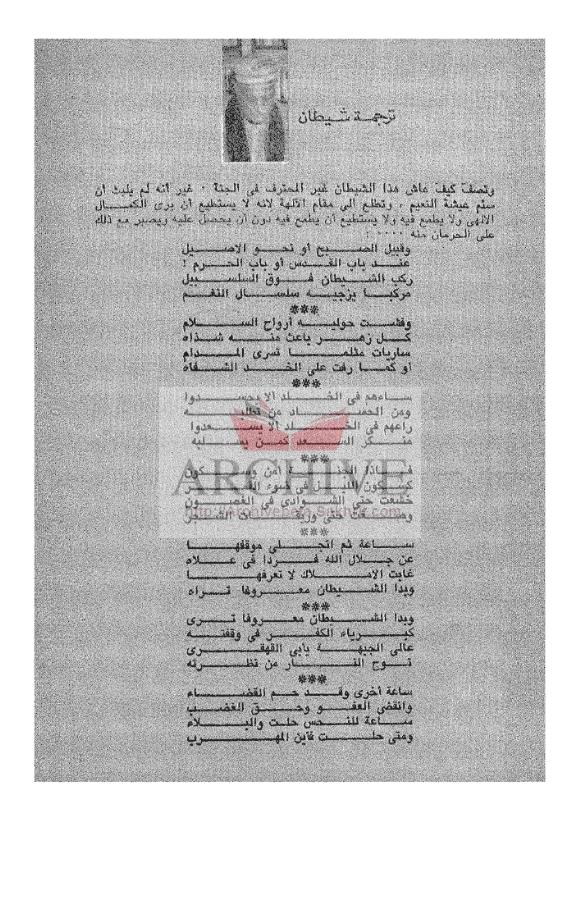 ترجمة شيطان
وتصف كيف عاش هذا الشيطان غير المحترف في الجنة . غير أنه لم يلبث أن
سئم عيشة النعيم ، وتطلع الى مقام الآلهة لأنه لا يستطيع أن يرى الكمال
الالهى ولا يطمع فيه ولا يستطيع أن يطمع فيه دون أن يحصل عليه ويصبر مع ذلك
على الحرمان منه . . . . .
وقبيل الصبح أو نحو الأصيل
عند باب القدس أو باب الحرم :
ركب الشيطان فوق السلسبيل
مركبا يزجيه سلسال النغم
***
وفشت حوليه أرواح السلام
كل زهر باعث منه شذاه
ساريات مثلما تسرى المدام
أو كما رفت على الخد الشفاه
***
ساءهم فى الخلد ألا يحسدوا
ومن الحساد من تطلبه
راعهم فى الخلد ألا يسعدوا
منكر السعد كمن يسلبه
***
فاذا الجنة أمن وسكون
كسكون الليل فى ضوء القمر
خشعت حتى الشوادى فى الغصون
وصغت حتى وريقات الشجر
ARCHIVE
http://Archivebeta.Sakhrit.com
***
ساعة ثم انجلى موقفها
عن جلال الله فردا فى علاه
غابت الأملاك لا تعرفها
وبدا الشيطان معروفا تراه
***
وبدا الشيطان معروفا ترى
كبرياء الكفر فى وقفته
عالى الجبهة يأبى القهقرى
توج النار من نظرته
***
ساعة أخرى وقد حم القضاء
وانقضى العفو وحق الغضب
ساعة للنحس حلت والبلاء
ومتى حلت فأين المهرب